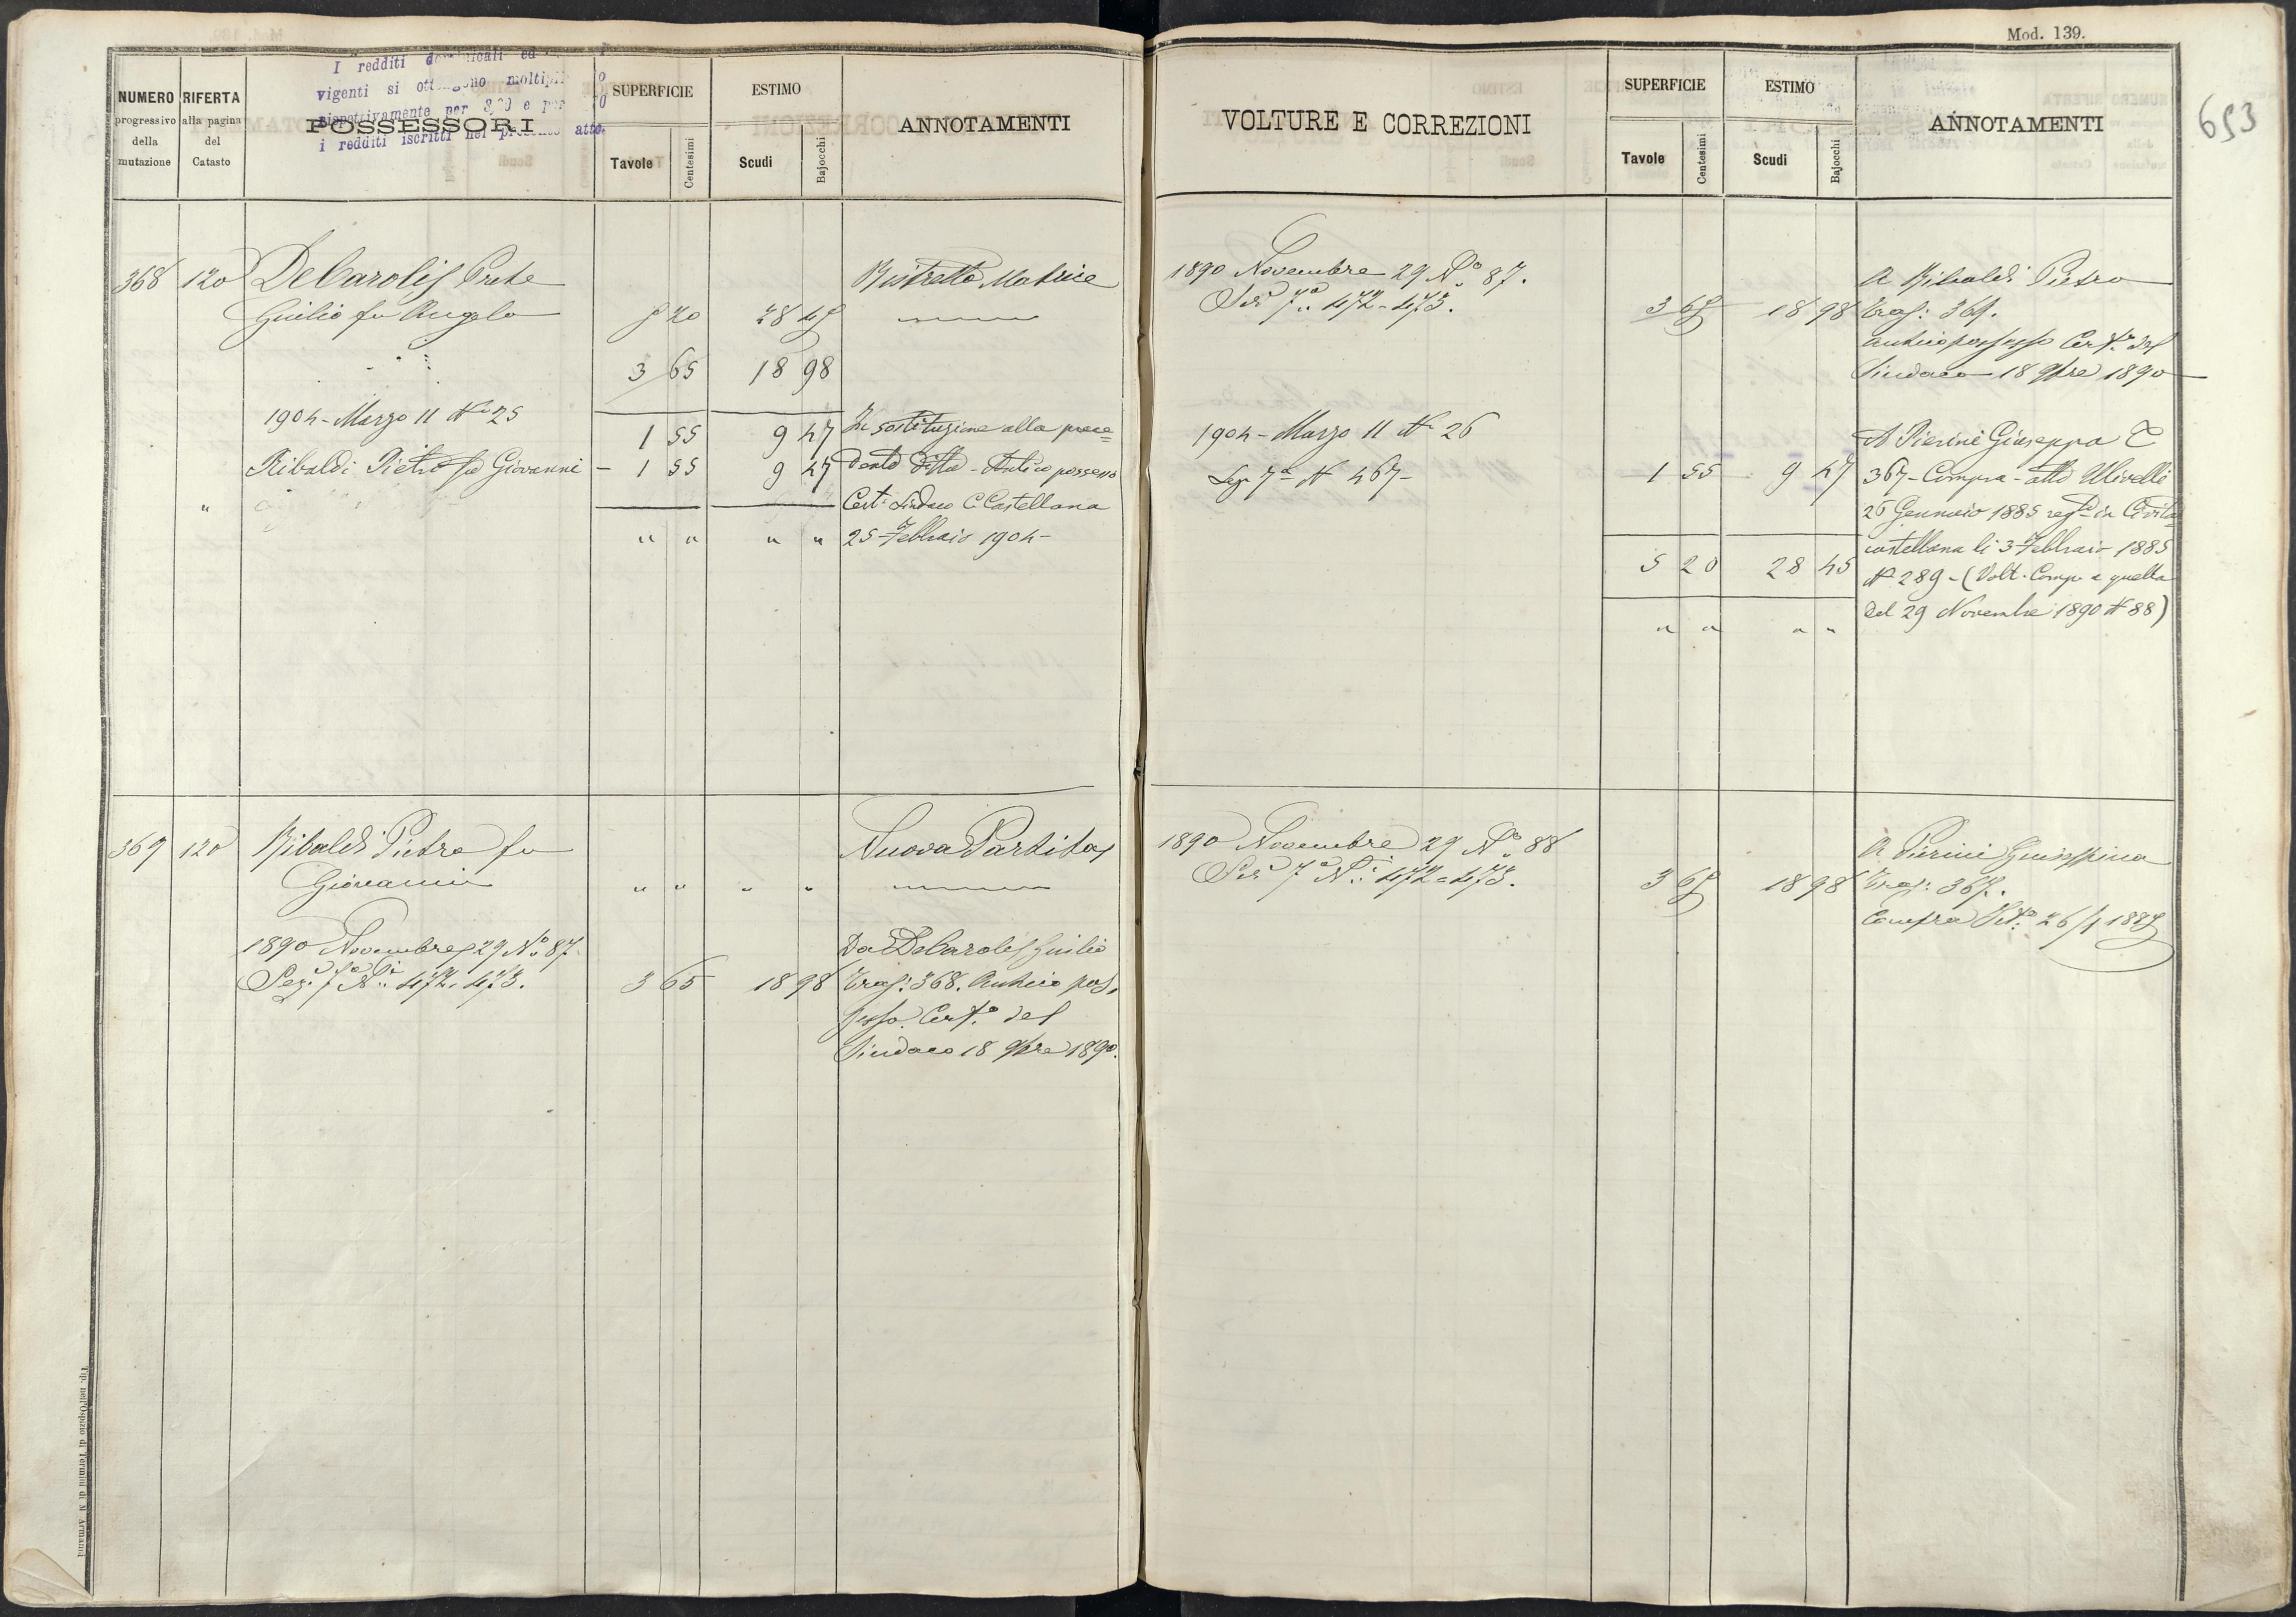 Mod. 139.
653
I redditi
vigenti si moltipli
rispettivamente per e per
i redditi iscritti nel atto
NUMERO
progressivo
della
mutazione
RIFERTA
alla pagina
del
Catasto
POSSESSORI
SUPERFICIE
Tavole
Centesimi
ESTIMO
Scudi
Bajocchi
ANNOTAMENTI
368 120 DeCarolis Prete Ristretto Matrice
Giulio fu Angelo 5 20 28 45
3 65 18 98
1904 - Marzo 11 N° 25 1 55 9 47 In sostituzione alla prece=
Ribaldi Pietro fu Giovanni - 1 55 9 47 dente Ditta - Antico possesso
" Cert° Sindaco C. Castellana
" " " " 25 Febbraio 1904 -
369 120 Ribaldi Pietro fu Nuova Partita
Giovanni " " " "
1890 Novembre 29 N° 87. Da DeCarolis Giulio
Sez. 7ª Ni 472. 473. 3 65 18 98 Tras: 368. Antico pos,
sesso. Cert.° del
Sindaco 18 9bre 1890.
Tip. nell'Ospizio di Termini di N. Armanni
VOLTURE E CORREZIONI
SUPERFICIE
Tavole
Centesimi
ESTIMO
Scudi
Bajocchi
ANNOTAMENTI
1890 Novembre 29 N° 87. A Ribaldi Pietro
7ª 472 - 473. 3 65 18 98 Tras: 369.
antico possesso Cert.° del
Sindaco 18 9bre 1890
1904 - Marzo 11 N° 26 A Pierini Giuseppa T
Sez 7ª N 467 - 1 55 9 47 367 - Compra - atto Ulivelli
26 Gennaio 1885 regto in Civita
castellana li 3 Febbraio 1885
5 20 28 45 N° 289 - (Volt. Comp. a quella
del 29 Novembre 1890 N 88)
" " " "
1890 Novembre 29 N° 88 A Pierini Giuseppina
7ª Ni: 472 = 473. 3 65 18 98 Tras: 367.
Compra 26/1 1885